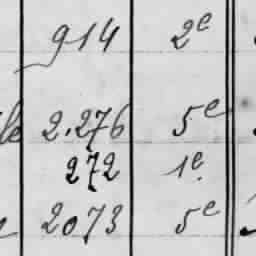 914 2e
2.276 5e
272 1e.
2073 5e